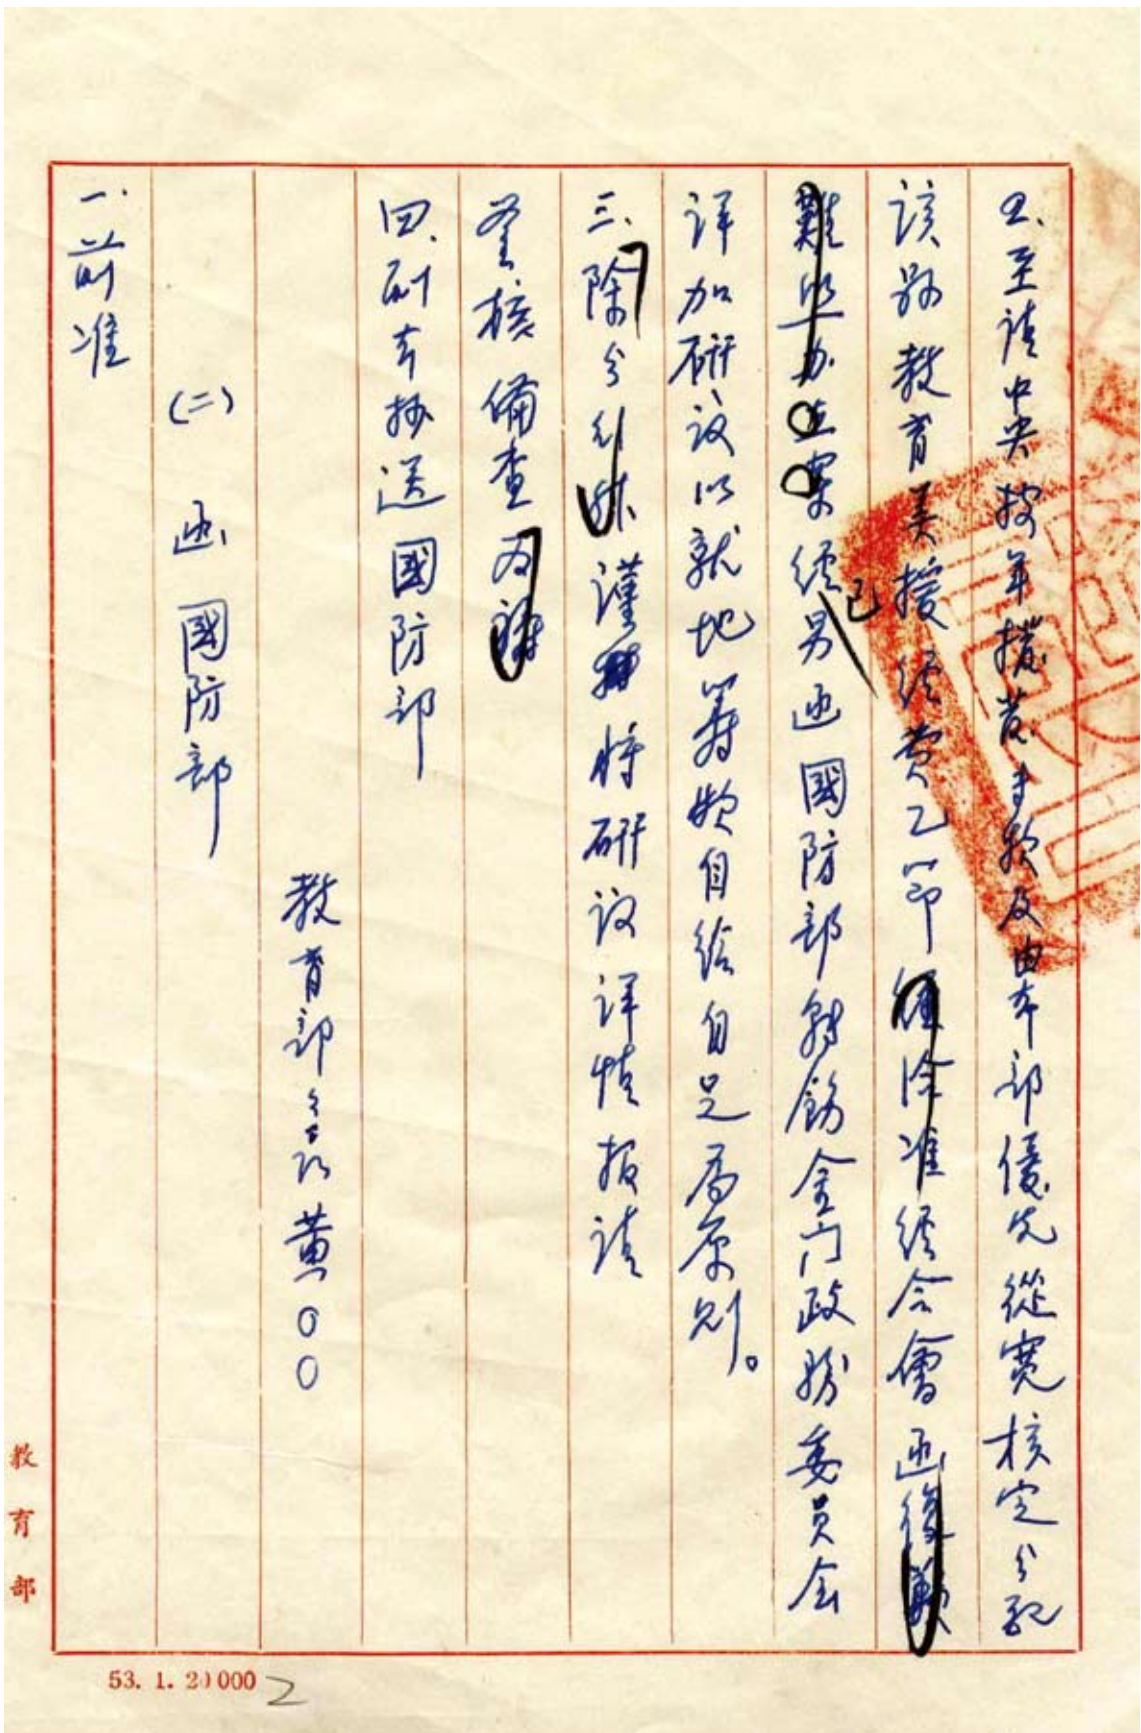 2、至請中央按年撥荒專款及由本部優先從寬核定分配
該縣教育美援經費乙節經洽准經合會函復歉
難照办立案經已另函國防部轉飭金门政務委員会
详加研议以就地筹款自给自足為原则。
三、除分别外謹將研议详情报请
鉴核備查为禱
四、副本抄送國防部
教育部部長黄〇〇
(二) 函 國防部
一、前准
教育部
53. 1. 20000
2